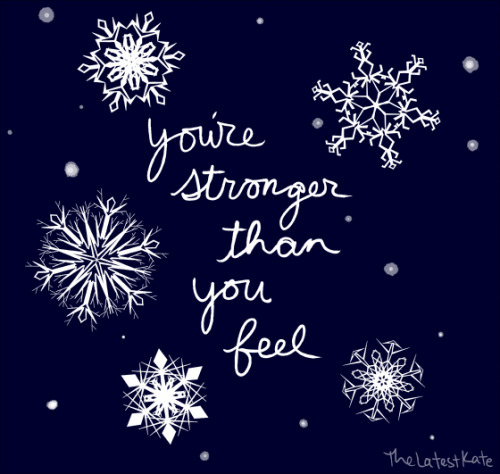 you're
stronger
than
you
feel
TheLatestKate